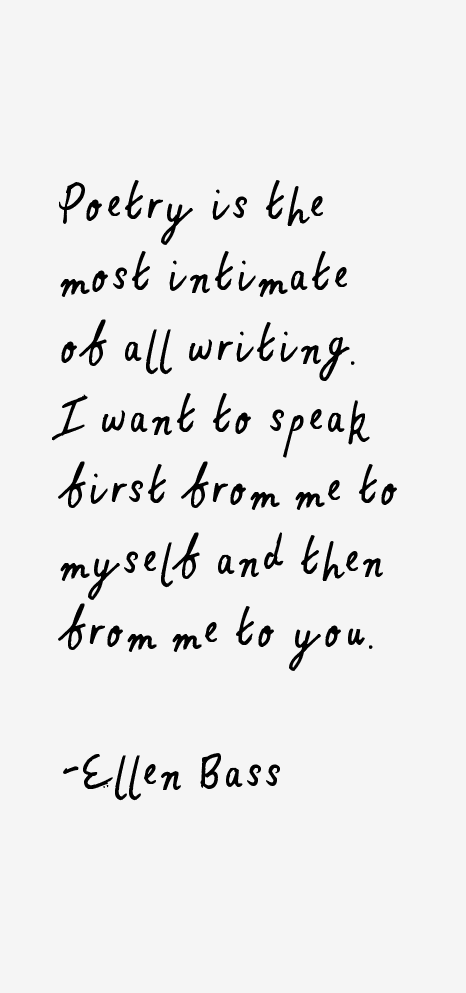 Poetry is the
most intimate
of all writing.
I want to speak
first from me to
myself and then
from me to you.
-Ellen Bass